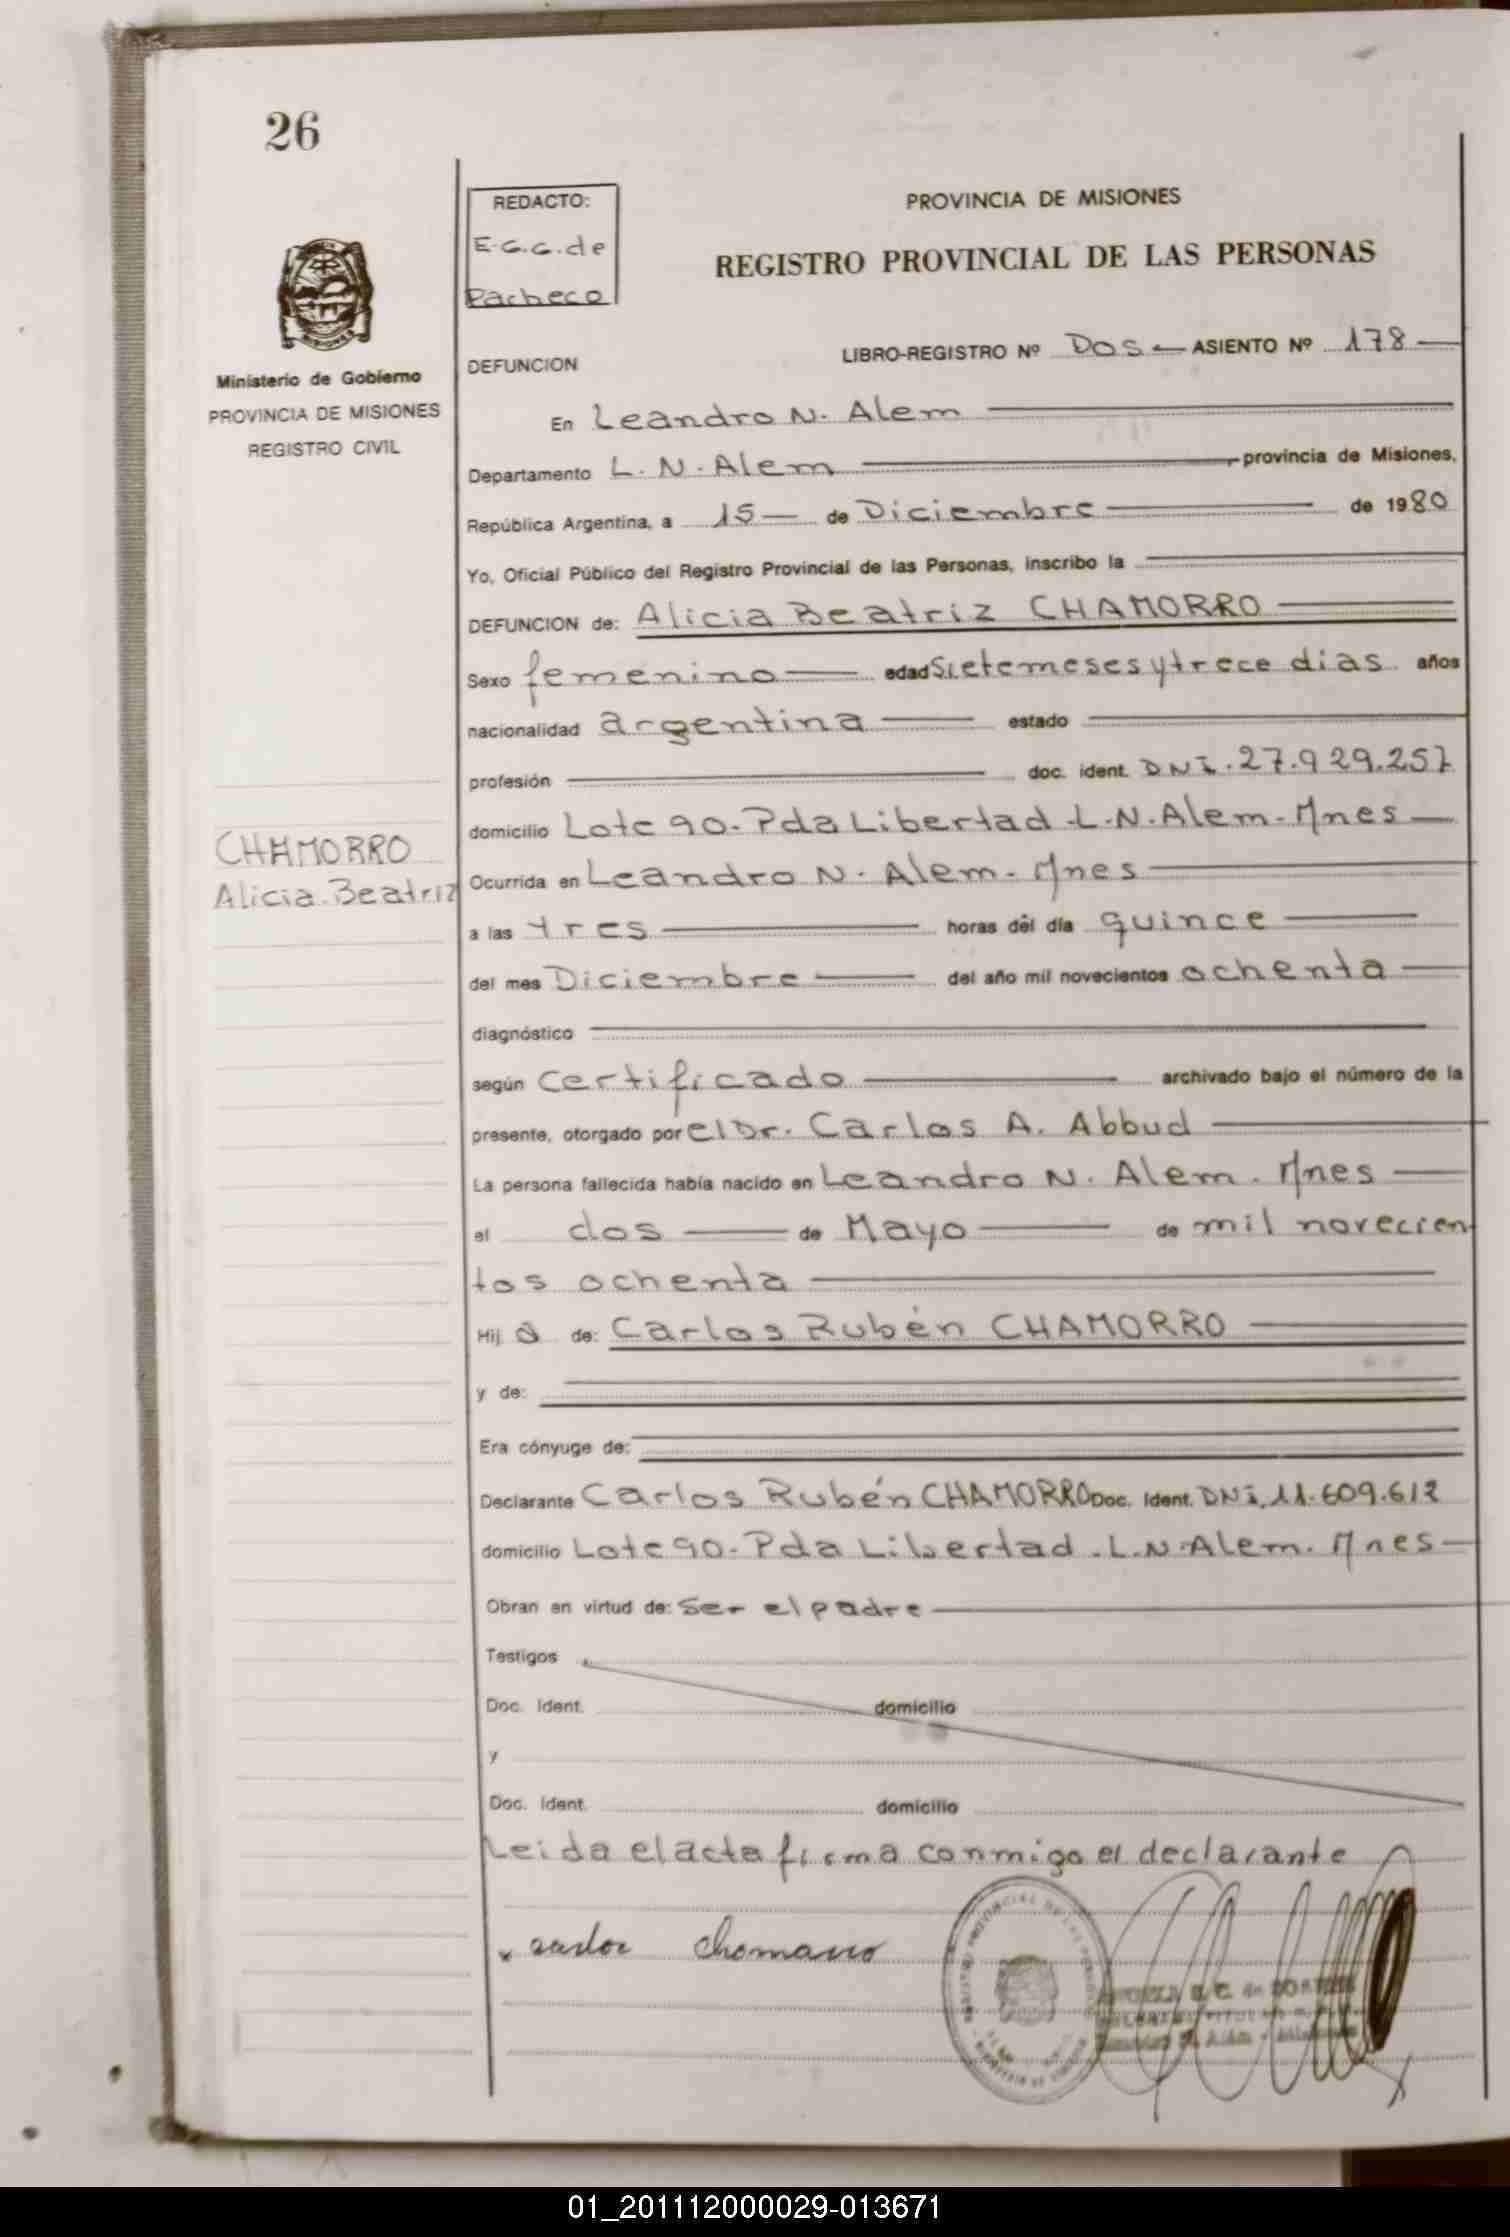 26
REDACTO:
E.G.G. de
Pacheco
PROVINCIA DE MISIONES
REGISTRO PROVINCIAL DE LAS PERSONAS
MISIONES
Ministerio de Gobierno
PROVINCIA DE MISIONES
REGISTRO CIVIL
DEFUNCION LIBRO-REGISTRO Nº Dos ASIENTO Nº 178
En Leandro N. Alem
Departamento L.N.Alem, provincia de Misiones,
República Argentina, a 15 de Diciembre de 1980
Yo, Oficial Público del Registro Provincial de las Personas, inscribo la
DEFUNCION de: Alicia Beatriz CHAMORRO
Sexo femenino edad Siete meses y trece dias años
nacionalidad argentina estado
profesión doc. ident. DNi.27.929.257
domicilio Lote 90-Pda Libertad-L.N.Alem-Mnes
CHAMORRO
Alicia Beatriz
Ocurrida en Leandro N. Alem-Mnes
a las tres horas del día quince
del mes Diciembre del año mil novecientos ochenta
diagnóstico
según certificado archivado bajo el número de la
presente, otorgado por el Dr. Carlos A. Abbud
La persona fallecida había nacido en Leandro N. Alem. Mnes
el dos de Mayo de mil novecien
tos ochenta
Hij a de: Carlos Rubén CHAMORRO
y de:
Era cónyuge de:
Declarante Carlos Rubén CHAMORRO Doc. Ident. DNi.11.609.612
domicilio Lote 90-Pda Libertad.L.N.Alem.Mnes
Obran en virtud de: Ser el padre
Testigos
Doc. Ident. domicilio
y
Doc. Ident. domicilio
Leida el acta firma conmigo el declarante
carlos chamorro
01_201112000029-013671